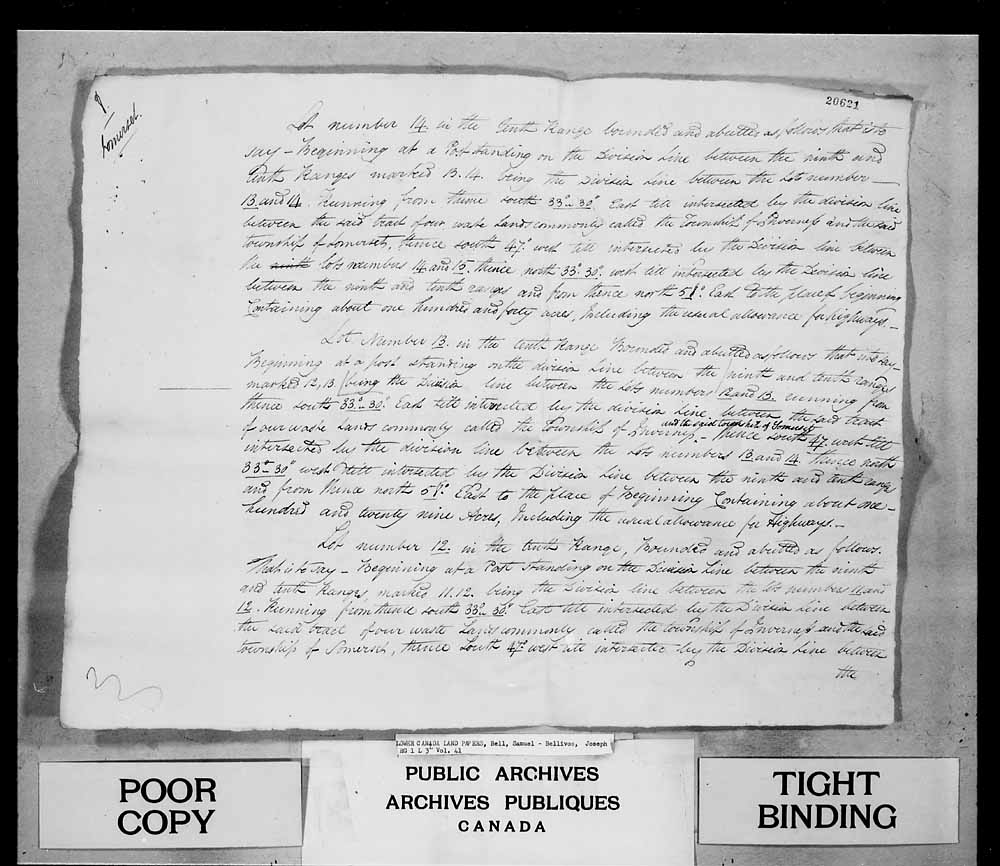 20621
Somerset.
Lot number 14. in the tenth Range bounded and abutted as follows that is to
say – Beginning at a Post standing on the Division Line between the ninth and
tenth Ranges marked 13.14. being the Division line between the lots number —
13 and 14. Running from thence south 33°. 30'. East till intersected by the division line
between the said tract of our waste Lands commonly called the Township of Inverness and the said
township of Somerset, thence south 47°. west till intersected by the Division line between
the ninth lots numbers 14 and 15. thence north 33°. 30'. west till intersected by the Division line
between the ninth and tenth ranges and from thence north 51°. East to the place of beginning
Containing about one hundred and forty acres, Including the usual allowance for highways –
Lot Number 13. in the tenth Range Bounded and abutted as follows that is to say –
Beginning at a post standing on the division Line between the ninth and tenth ranges
marked 12, 13 being the Division line between the Lots numbers 12 and 13. running from
thence south 33°. 30'. East till intersected by the division Line between the said tract
of our waste Lands commonly called the Township of Inverness – and the said township of Somerset thence South 47°. west till
intersected by the division line between the Lots numbers 13 and 14. thence north
33°. 30' west till intersected by the Division Line between the ninth and tenth range
and from thence north 51°. East to the place of Beginning Containing about one –
hundred and twenty nine Acres, Including the usual allowance for Highways. –
Lot number 12. in the tenth Range, Bounded and abutted as follows.
That is to say – Beginning at a Post Standing on the Division Line between the ninth
and tenth Ranges, marked 11.12. being the Division line between the lots numbers 11 and
12. Running from thence south 33°. 30'. East till intersected by the Division Line between
the said tract of our waste Lands commonly called the township of Inverness and the said
township of Somerset, thence South 47°. west till intersected by the Division Line between
the
LOWER CANADA LAND PAPERS, Bell, Samuel - Bellivoe, Joseph
RG 1 L 3" Vol. 41
POOR
COPY
PUBLIC ARCHIVES
ARCHIVES PUBLIQUES
CANADA
TIGHT
BINDING